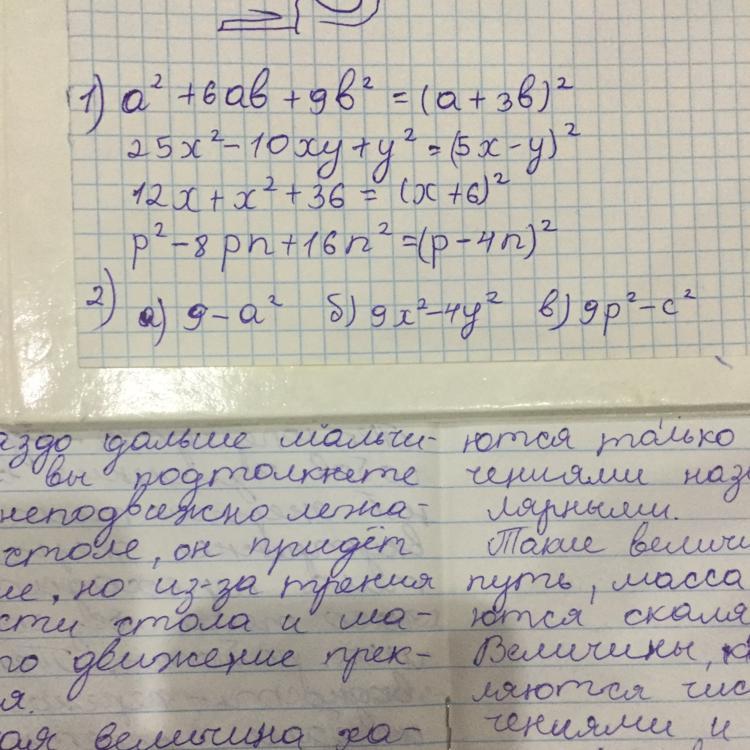 1) a² + 6ab + 9b² = (a + 3b)²
25x² - 10xy + y² = (5x - y)²
12x + x² + 36 = (x + 6)²
p² - 8pn + 16n² = (p - 4n)²
2) а) 9 - a² б) 9x² - 4y² в) 9p² - c²
аздо дальше мальчи-
вы подтолкнете
неподвижно лежа-
столе, он придёт
ие, но из-за трения
сти стола и ма-
го движение прек-
я.
кая величина ха-
ются только
чениями назы
лярными.
Такие величи
путь, масса
ются скаля
Величины, к
ляются чис
чениями и